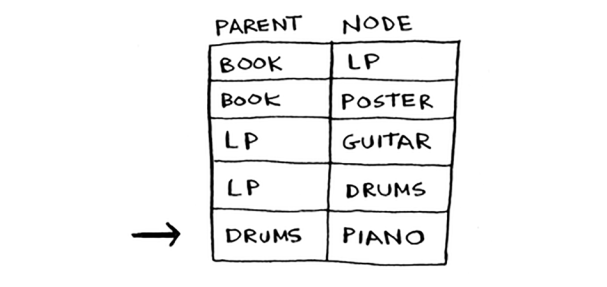 PARENT NODE
BOOK LP
BOOK POSTER
LP GUITAR
LP DRUMS
DRUMS PIANO